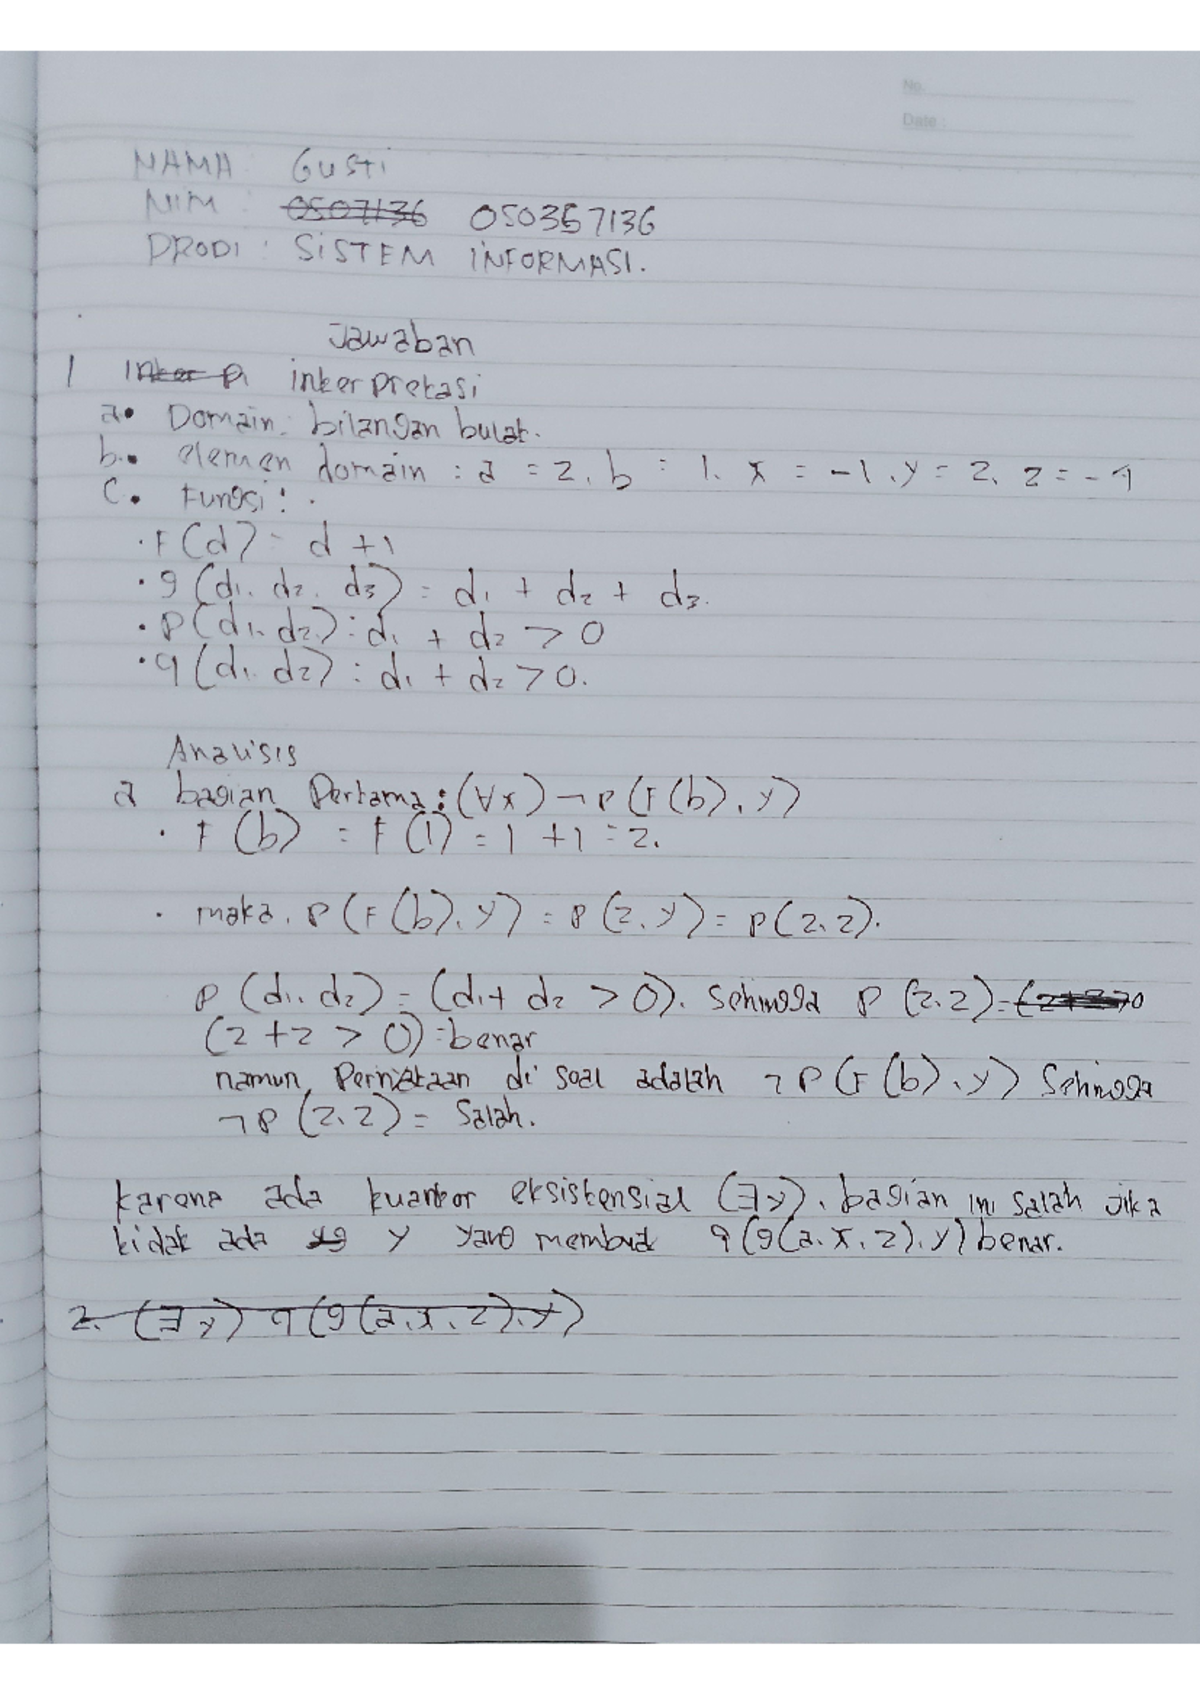 No.
Date :
NAMA : Gusti
NIM : 0507136 050367136
PRODI : SISTEM INFORMASI.
Jawaban
1 interpretasi
a• Domain : bilangan bulat.
b.• elemen domain : a = 2, b = 1, x = -1, y = 2, z = -1
C. Fungsi :
• F(d) = d +1
• g (d1, d2, d3) = d1 + d2 + d3.
• P(d1, d2) : d1 + d2 > 0
• q (d1, d2) : d1 + d2 > 0.
Analisis
a bagian Pertama : (∀x) ¬P(F(b), y)
• F (b) = F (1) = 1 +1 = 2.
• maka, P (F(b), y) = P (2, y) = P(2, 2).
P (d1, d2) = (d1+ d2 > 0). Sehingga P (2, 2) =
(2 +2 > 0) = benar
namun, Pernyataan di soal adalah ¬P (F(b), y) Sehingga
¬P (2, 2) = Salah.
karena ada kuantor eksistensial (∃y), bagian ini salah jika
tidak ada y yang membuat q(g(a, x, z), y) benar.
2. (∃y) q (g(a, x, z), y)